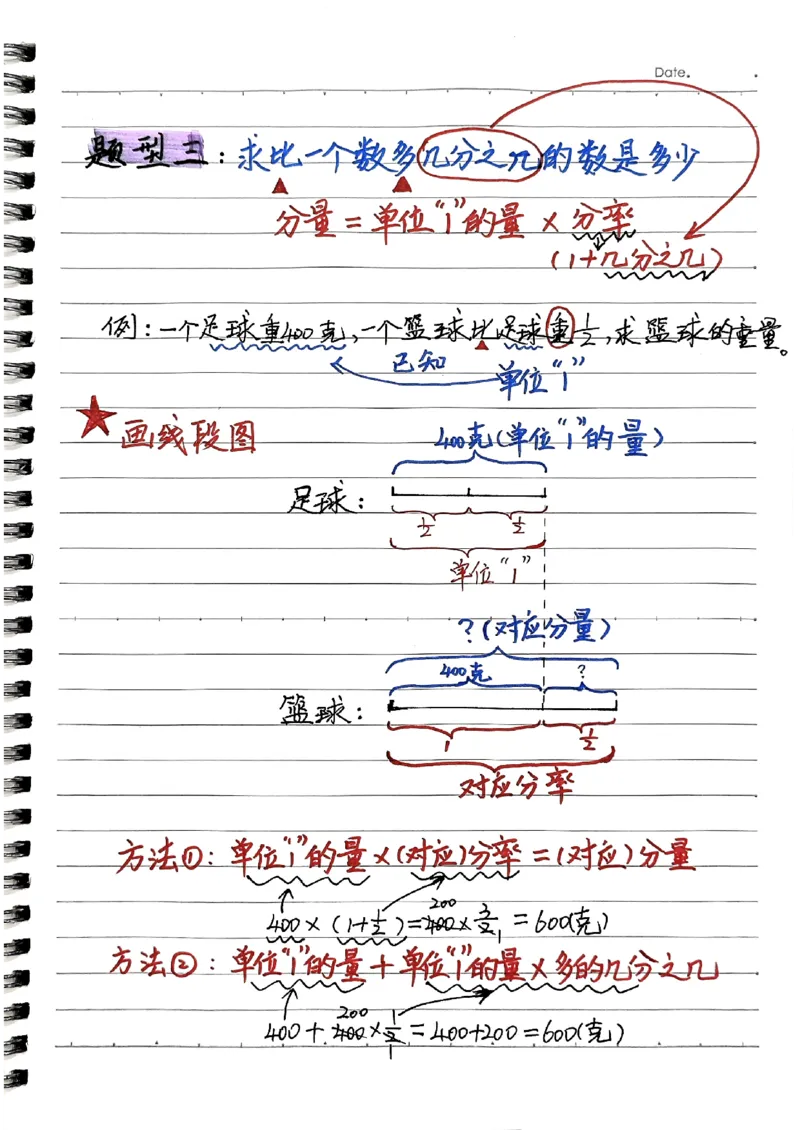 Date.
题型三：求比一个数多几分之几的数是多少
分量＝单位“1”的量×分率
（1＋几分之几）
例：一个足球重400克，一个篮球比足球重1/2，求篮球的重量。
已知
单位“1”
画线段图
400克（单位“1”的量）
足球：
1/2 1/2
单位“1”
？（对应分量）
400克 ？
篮球：
1 1/2
对应分率
方法①：单位“1”的量×（对应）分率＝（对应）分量
200
400×（1＋1/2）＝400×3/2 1＝600（克）
方法②：单位“1”的量＋单位“1”的量×多的几分之几
200
400＋400×1/2＝400＋200＝600（克）
1